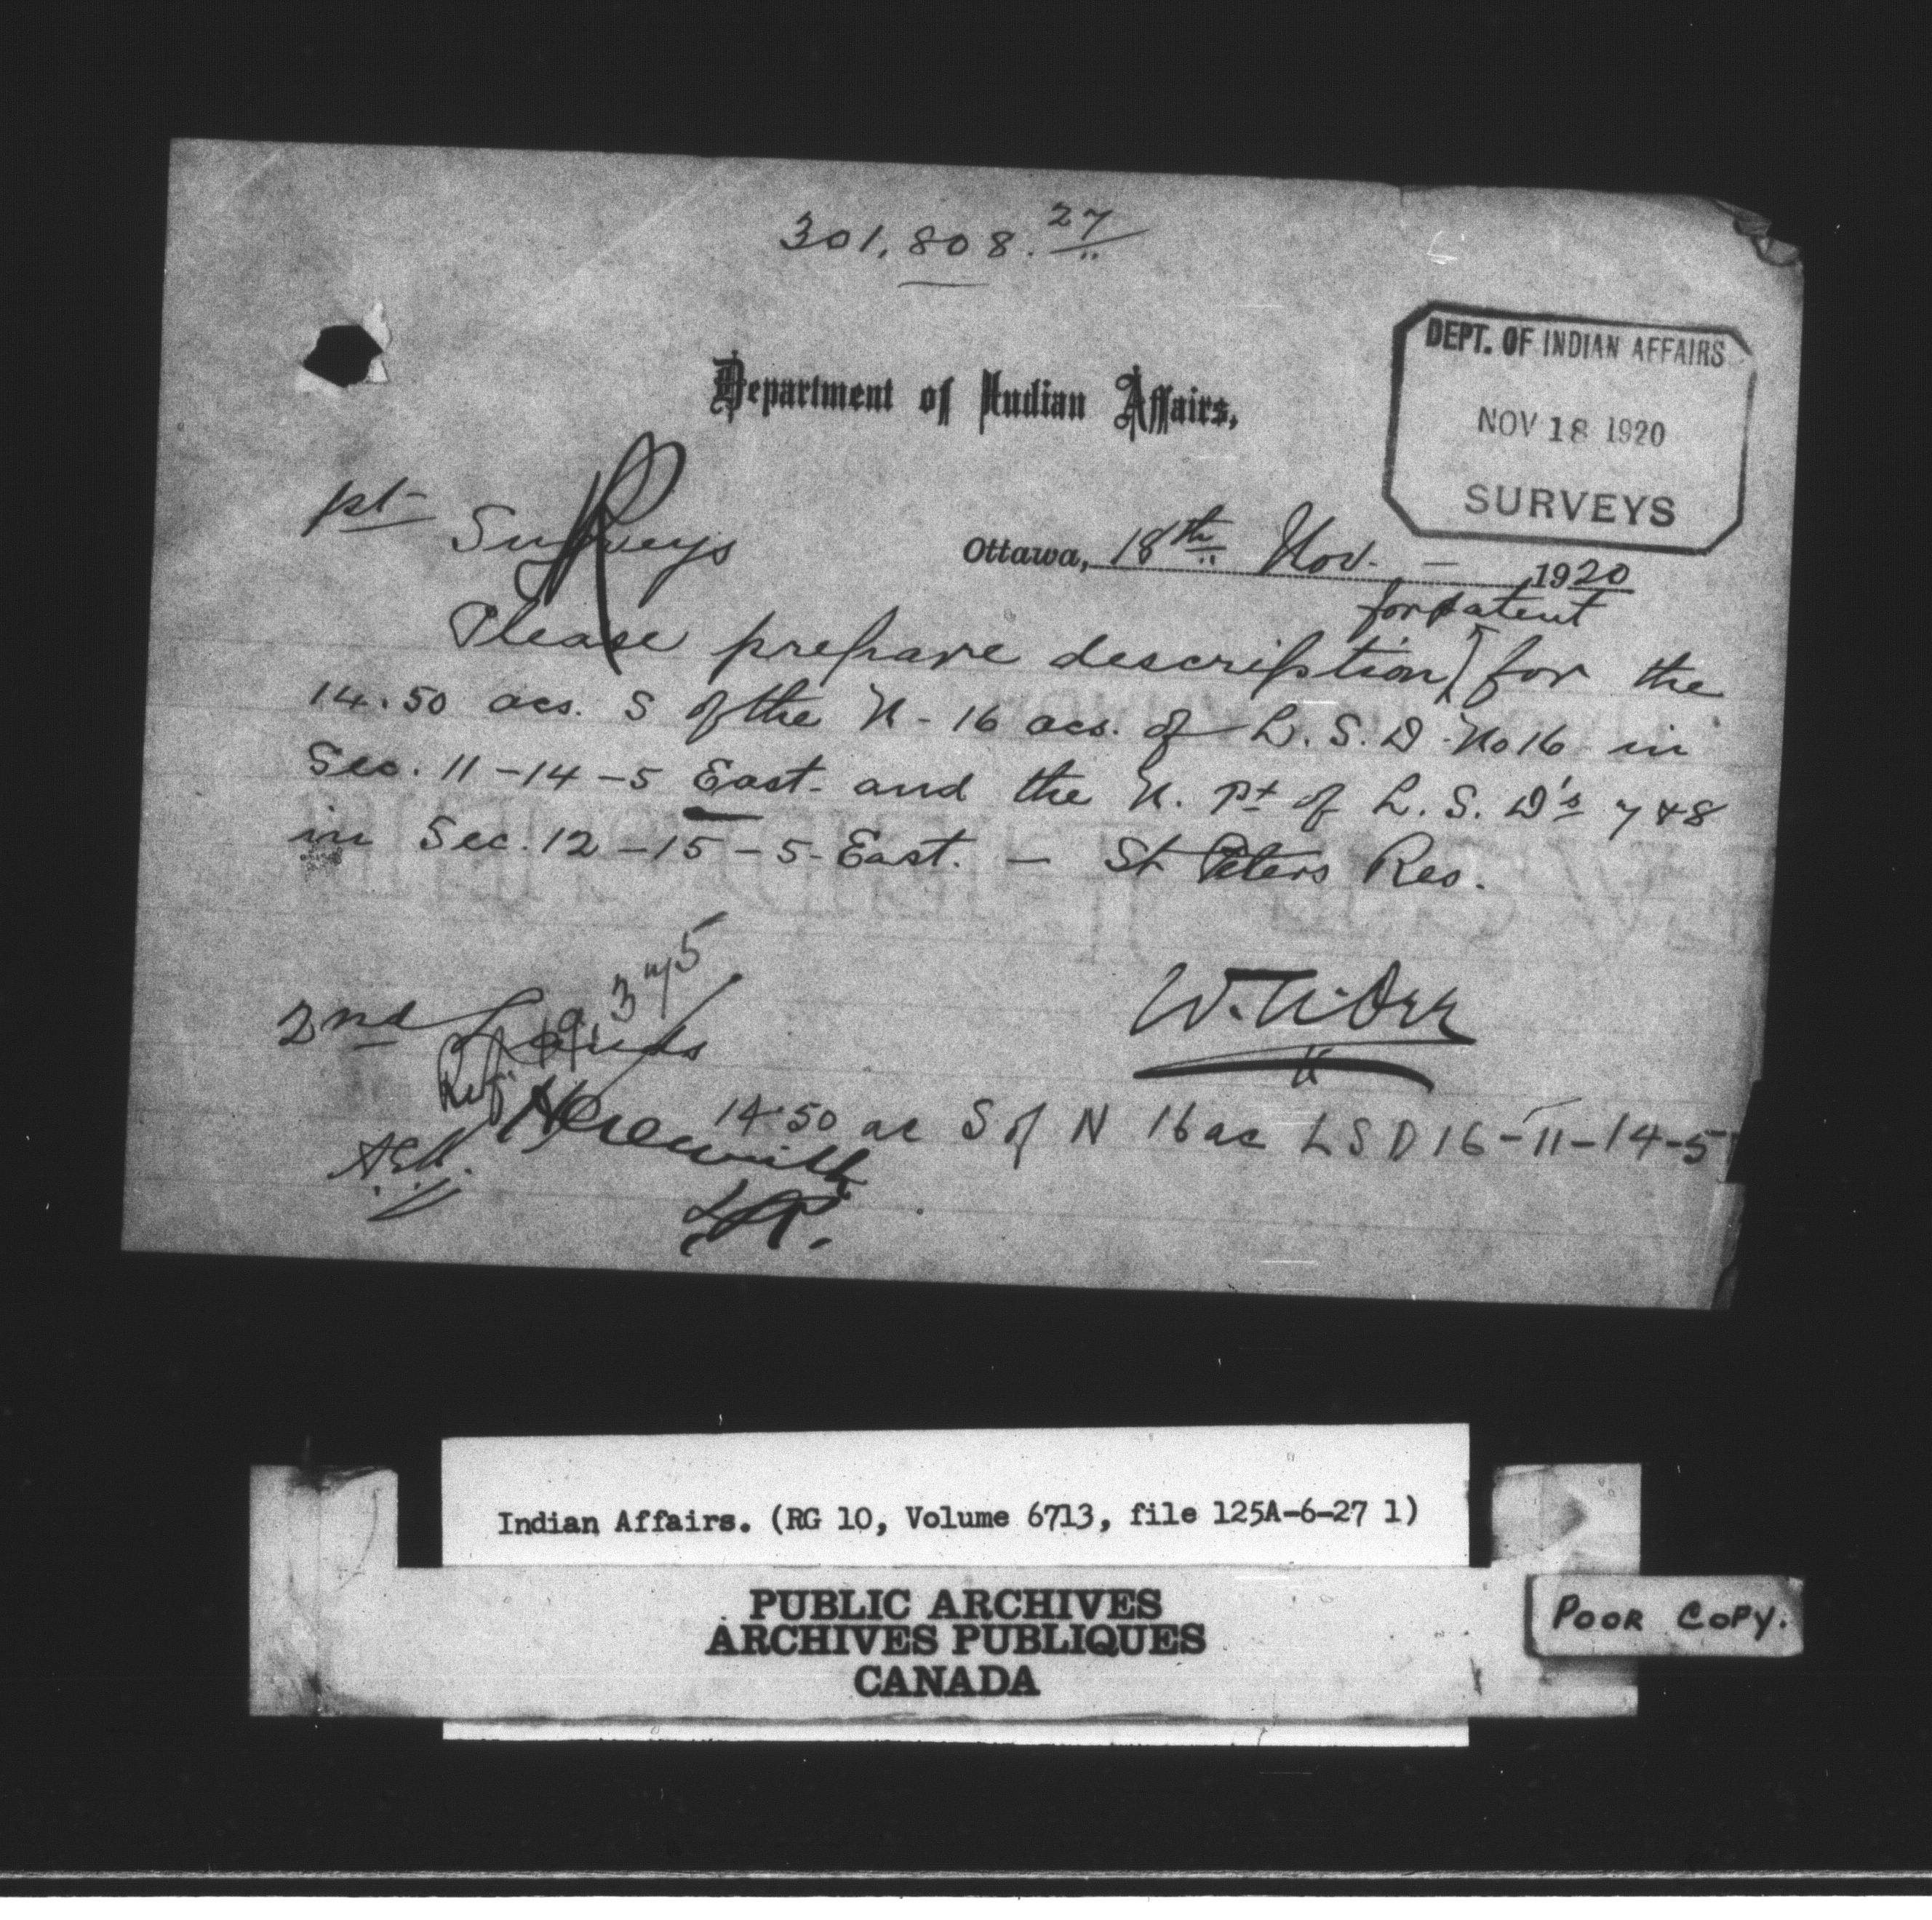 301,808.27
Department of Indian Affairs,
DEPT. OF INDIAN AFFAIRS
NOV 18 1920
SURVEYS
Surveys
Ottawa, 18th Nov. - 1920
for patent
Please prepare description for the
14.50 acs. S of the N - 16 acs. of L.S.D. No 16 in
Sec. 11-14-5 East and the N. Pt of L.S.D's 7 & 8
in Sec. 12-15-5-East. - St Peters Res.
2nd Lands
W.A. Orr
Herewith
14.50 ac S of N 16 ac LSD 16-11-14-5
Indian Affairs. (RG 10, Volume 6713, file 125A-6-27 1)
PUBLIC ARCHIVES
ARCHIVES PUBLIQUES
CANADA
POOR COPY.